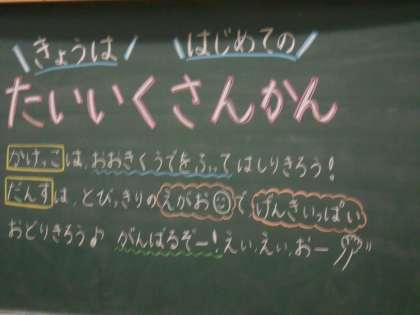 きょうは はじめての
たいいくさんかん
かけっこは、おおきくうでをふってはしりきろう!
だんすは、とびっきりのえがおで、げんきいっぱい
おどりきろう♪ がんばるぞー!えい、えい、おー